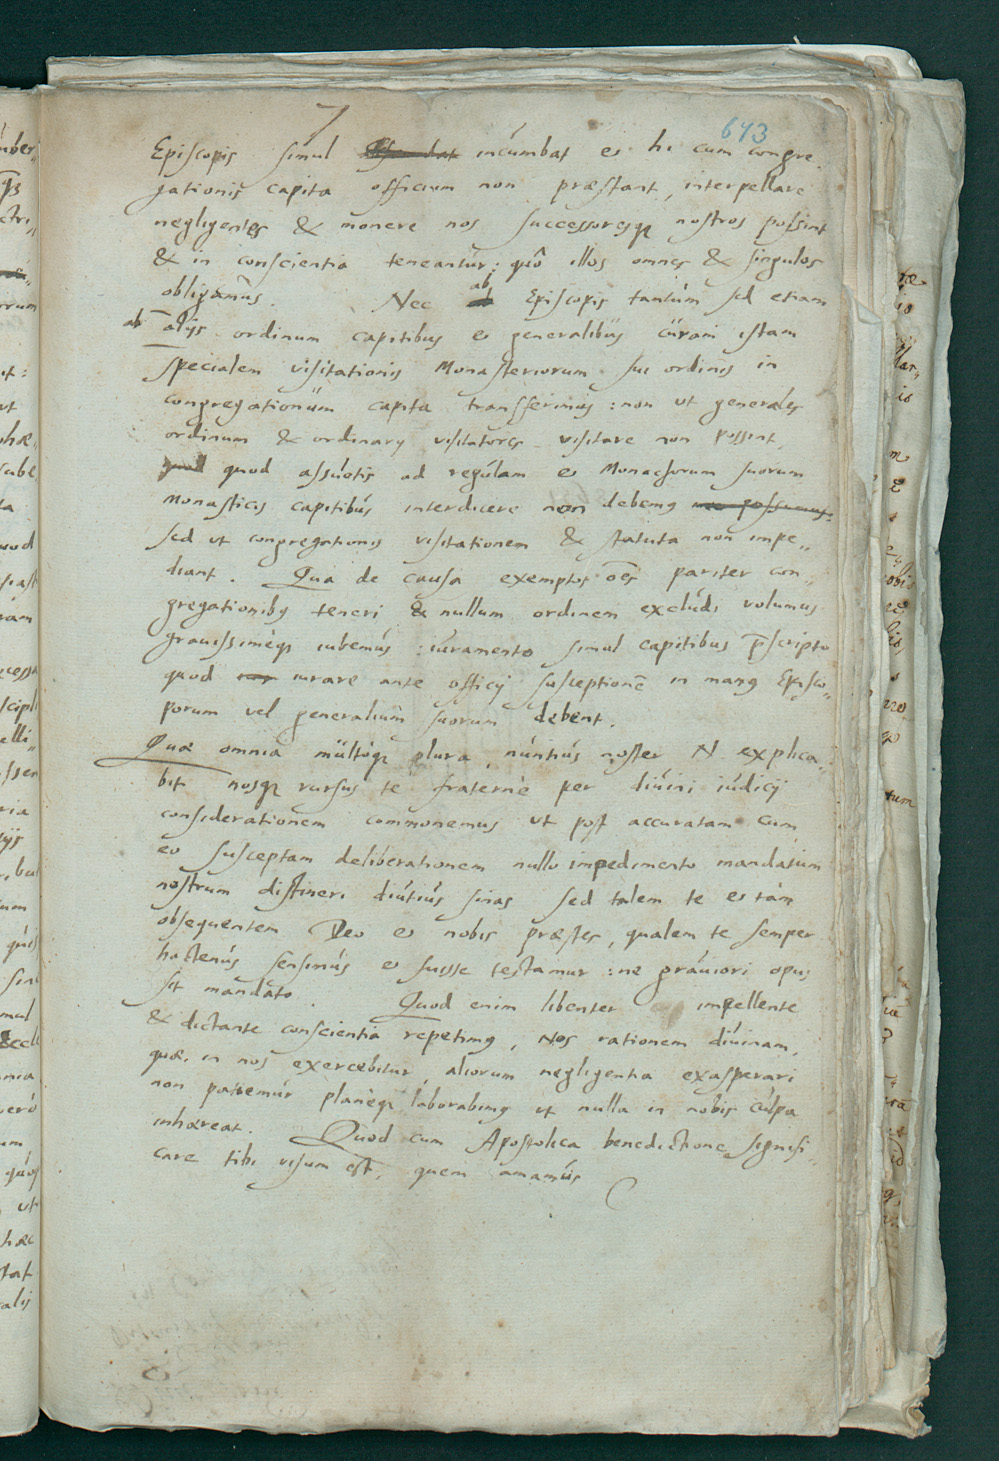 7
673
Episcopis simul incumbat et hi cum congre
gationis capita officium non præstant, interpellare
negligentes & monere nos successoresq nostros possint
& in conscientia teneantur: quô illos omnes & singulos
obligamus. Nec ab Episcopis tantùm sed etiam
ab alijs ordinum capitibus et generalibus curam istam
specialem visitationis Monasteriorum sui ordinis in
congregationum capita transferimus: non ut generales
ordinum & ordinarij visitatores visitare non possint,
quod assuetis ad regulam et Monachorum suorum
Monasticis capitibus interdicere non debemus nec possumus
sed ut congregationis visitationem & statuta non impe„
diant. Qua de causa exemptos oẽs pariter con„
gregationibus teneri & nullum ordinem excludi volumus
grauissimeq iubemus: iuramento simul capitibus p̃scripto
quod iurare ante officij susceptionẽ in manus Episco„
porum vel generalium suorum debent.
Quæ omnia multoq plura, nuntius noster N explica„
bit nosq rursus te fraternè per diuini iudicij
considerationem commonemus ut post accuratam cum
eo susceptam deliberationem nullo impedimento mandatum
nostrum distineri diutiùs sinas sed talem te et tàm
obsequentem Deo et nobis præstes, qualem te semper
hactenùs sensimus et fuisse testamur: ne grauiori opus
sit mandato. Quod enim libenter impellente
& dictante conscientia repetimus, Nos rationem diuinam,
quæ in nos exercebitur, aliorum negligentia exasperari
non patiemur planeq laborabimus ut nulla in nobis culpa
inhæreat. Quod cum Apostolica benedictione signifi„
care tibi visum est, quem amamus